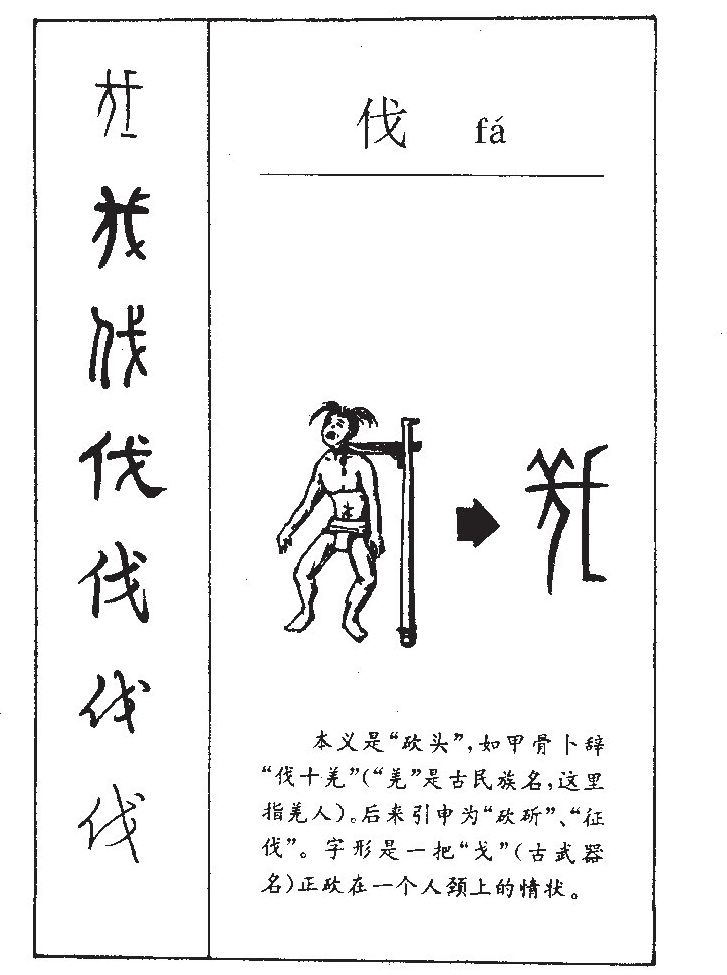 伐 fá
本义是“砍头”，如甲骨卜辞
“伐十羌”（“羌”是古民族名，这里
指羌人）。后来引申为“砍斫”、“征
伐”。字形是一把“戈”（古武器
名）正砍在一个人颈上的情状。
伐
伐
伐
伐
伐
伐
伐